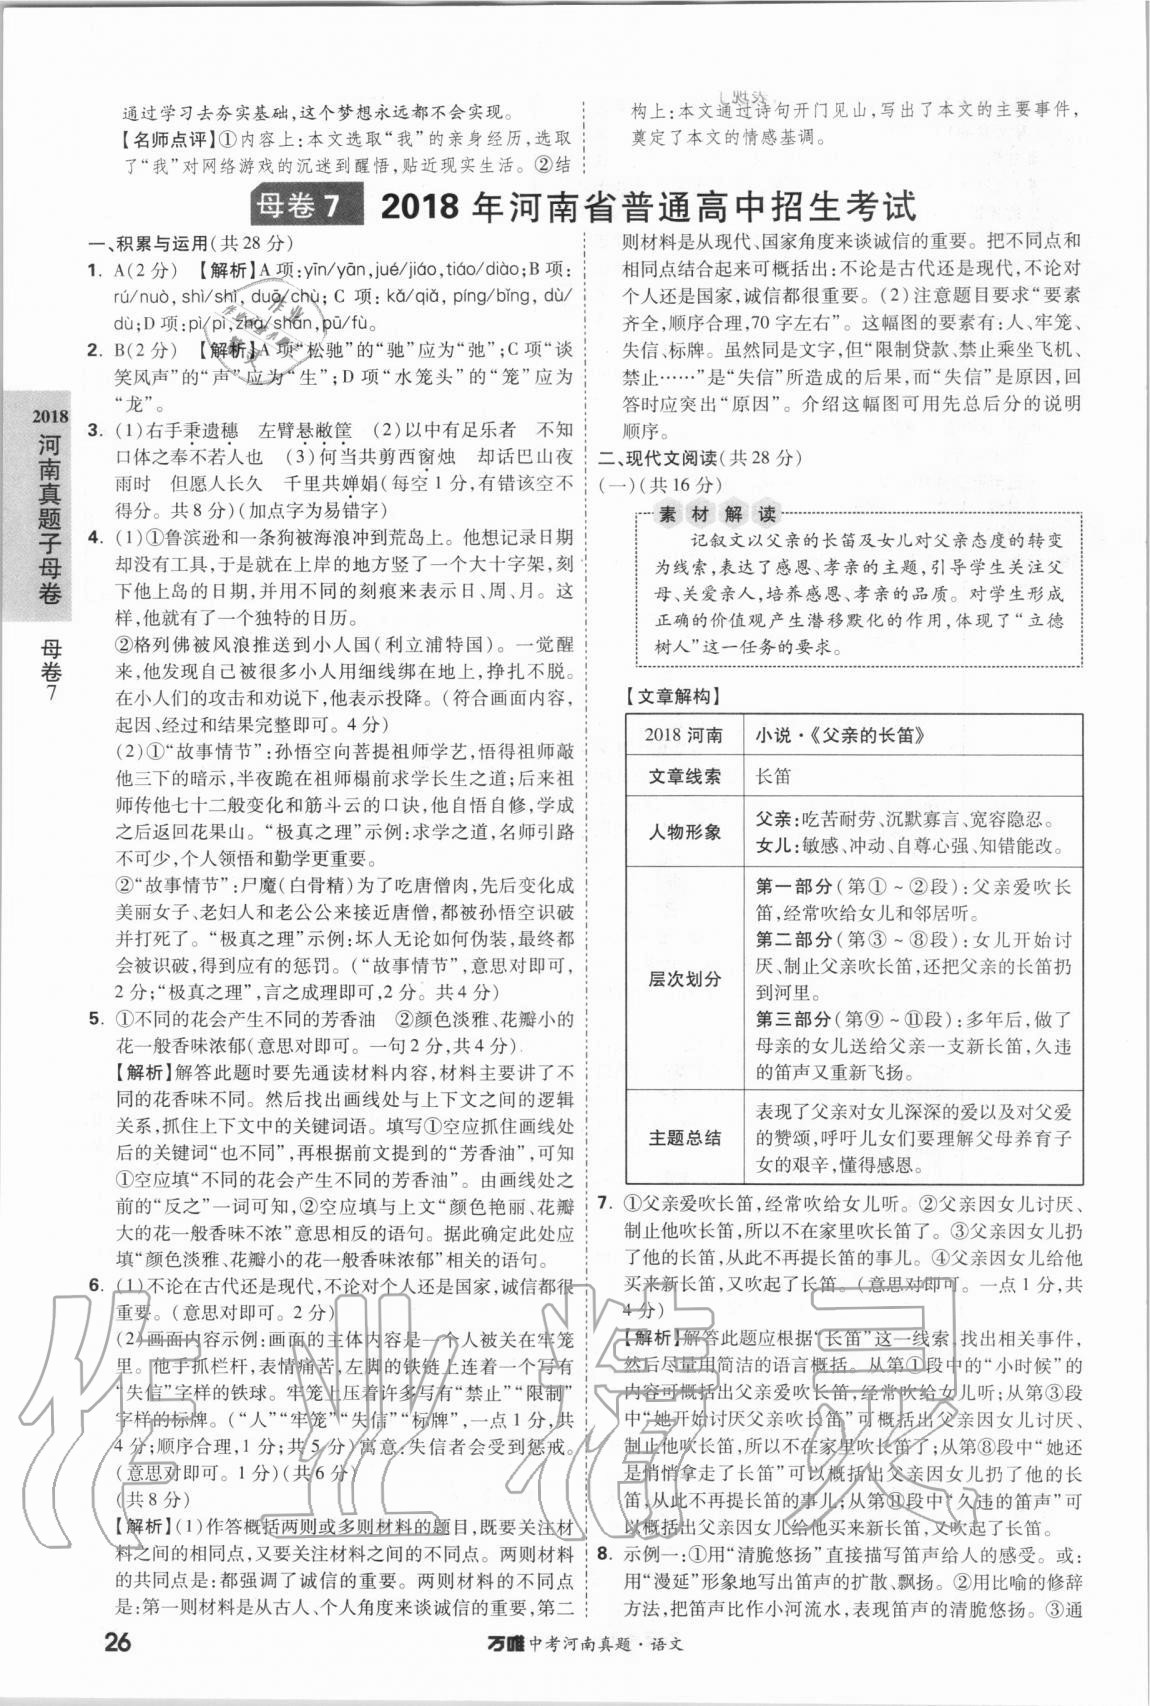 通过学习去夯实基础,这个梦想永远都不会实现。
【名师点评】①内容上:本文选取“我”的亲身经历,选取
了“我”对网络游戏的沉迷到醒悟,贴近现实生活。②结
构上:本文通过诗句开门见山,写出了本文的主要事件,
奠定了本文的情感基调。
母卷7 2018年河南省普通高中招生考试
一、积累与运用(共28分)
1. A(2分) 【解析】A项:yīn/yān,jué/jiáo,tiáo/diào;B项:
rú/nuò,shì/shì,duō/chù;C项:kǎ/qiǎ,píng/bǐng,dù/
dù;D项:pì/pì,zhà/shān,pū/fū。
2. B(2分) 【解析】A项“松驰”的“驰”应为“弛”;C项“谈
笑风声”的“声”应为“生”;D项“水笼头”的“笼”应为
“龙”。
3. (1)右手秉遗穗 左臂悬敝筐 (2)以中有足乐者 不知
口体之奉不若人也 (3)何当共剪西窗烛 却话巴山夜
雨时 但愿人长久 千里共婵娟(每空1分,有错该空不
得分。共8分)(加点字为易错字)
4. (1)①鲁滨逊和一条狗被海浪冲到荒岛上。他想记录日期
却没有工具,于是就在上岸的地方竖了一个大十字架,刻
下他上岛的日期,并用不同的刻痕来表示日、周、月。这
样,他就有了一个独特的日历。
②格列佛被风浪推送到小人国(利立浦特国)。一觉醒
来,他发现自己被很多小人用细线绑在地上,挣扎不脱。
在小人们的攻击和劝说下,他表示投降。(符合画面内容,
起因、经过和结果完整即可。4分)
(2)①“故事情节”:孙悟空向菩提祖师学艺,悟得祖师敲
他三下的暗示,半夜跪在祖师榻前求学长生之道;后来祖
师传他七十二般变化和筋斗云的口诀,他自悟自修,学成
之后返回花果山。“极真之理”示例:求学之道,名师引路
不可少,个人领悟和勤学更重要。
②“故事情节”:尸魔(白骨精)为了吃唐僧肉,先后变化成
美丽女子、老妇人和老公公来接近唐僧,都被孙悟空识破
并打死了。“极真之理”示例:坏人无论如何伪装,最终都
会被识破,得到应有的惩罚。(“故事情节”,意思对即可,
2分;“极真之理”,言之成理即可,2分。共4分)
5. ①不同的花会产生不同的芳香油 ②颜色淡雅、花瓣小的
花一般香味浓郁(意思对即可。一句2分,共4分)
【解析】解答此题时要先通读材料内容,材料主要讲了不
同的花香味不同。然后找出画线处与上下文之间的逻辑
关系,抓住上下文中的关键词语。填写①空应抓住画线处
后的关键词“也不同”,再根据前文提到的“芳香油”,可知
①空应填“不同的花会产生不同的芳香油”。由画线处之
前的“反之”一词可知,②空应填与上文“颜色艳丽、花瓣
大的花一般香味不浓”意思相反的语句。据此确定此处应
填“颜色淡雅、花瓣小的花一般香味浓郁”相关的语句。
6. (1)不论在古代还是现代,不论对个人还是国家,诚信都很
重要。(意思对即可。2分)
(2)画面内容示例:画面的主体内容是一个人被关在牢笼
里。他手抓栏杆,表情痛苦,左脚的铁链上连着一个写有
“失信”字样的铁球。牢笼上压着许多写有“禁止”“限制”
字样的标牌。(“人”“牢笼”“失信”“标牌”,一点1分,共
4分;顺序合理,1分;共5分)寓意:失信者会受到惩戒。
(意思对即可。1分)(共6分)
(共8分)
【解析】(1)作答概括两则或多则材料的题目,既要关注材
料之间的相同点,又要关注材料之间的不同点。两则材料
的共同点是:都强调了诚信的重要。两则材料的不同点
是:第一则材料是从古人、个人角度来谈诚信的重要,第二
则材料是从现代、国家角度来谈诚信的重要。把不同点和
相同点结合起来可概括出:不论是古代还是现代,不论对
个人还是国家,诚信都很重要。(2)注意题目要求“要素
齐全,顺序合理,70字左右”。这幅图的要素有:人、牢笼、
失信、标牌。虽然同是文字,但“限制贷款、禁止乘坐飞机、
禁止……”是“失信”所造成的后果,而“失信”是原因,回
答时应突出“原因”。介绍这幅图可用先总后分的说明
顺序。
二、现代文阅读(共28分)
(一)(共16分)
素材解读
记叙文以父亲的长笛及女儿对父亲态度的转变
为线索,表达了感恩、孝亲的主题,引导学生关注父
母、关爱亲人,培养感恩、孝亲的品质。对学生形成
正确的价值观产生潜移默化的作用,体现了“立德
树人”这一任务的要求。
【文章解构】
2018河南 小说·《父亲的长笛》
文章线索 长笛
人物形象 父亲:吃苦耐劳、沉默寡言、宽容隐忍。
女儿:敏感、冲动、自尊心强、知错能改。
层次划分 第一部分(第①~②段):父亲爱吹长
笛,经常吹给女儿和邻居听。
第二部分(第③~⑧段):女儿开始讨
厌、制止父亲吹长笛,还把父亲的长笛扔
到河里。
第三部分(第⑨~⑪段):多年后,做了
母亲的女儿送给父亲一支新长笛,久违
的笛声又重新飞扬。
主题总结 表现了父亲对女儿深深的爱以及对父爱
的赞颂,呼吁儿女们要理解父母养育子
女的艰辛,懂得感恩。
7. ①父亲爱吹长笛,经常吹给女儿听。②父亲因女儿讨厌、
制止他吹长笛,所以不在家里吹长笛了。③父亲因女儿扔
了他的长笛,从此不再提长笛的事儿。④父亲因女儿给他
买来新长笛,又吹起了长笛。(意思对即可。一点1分,共
4分)
【解析】解答此题应根据“长笛”这一线索,找出相关事件,
然后尽量用简洁的语言概括。从第①段中的“小时候”的
内容可概括出父亲爱吹长笛,经常吹给女儿听;从第③段
中“她开始讨厌父亲吹长笛”可概括出父亲因女儿讨厌、
制止他吹长笛,所以不在家里吹长笛了;从第⑧段中“她还
是悄悄拿走了长笛”可以概括出父亲因女儿扔了他的长
笛,从此不再提长笛的事儿;从第⑪段中“久违的笛声”可
以概括出父亲因女儿给他买来新长笛,又吹起了长笛。
8. 示例一:①用“清脆悠扬”直接描写笛声给人的感受。或:
用“漫延”形象地写出笛声的扩散、飘扬。②用比喻的修辞
方法,把笛声比作小河流水,表现笛声的清脆悠扬。③通
2018
河南真题子母卷
母卷7
26
万唯中考河南真题·语文
作业精灵